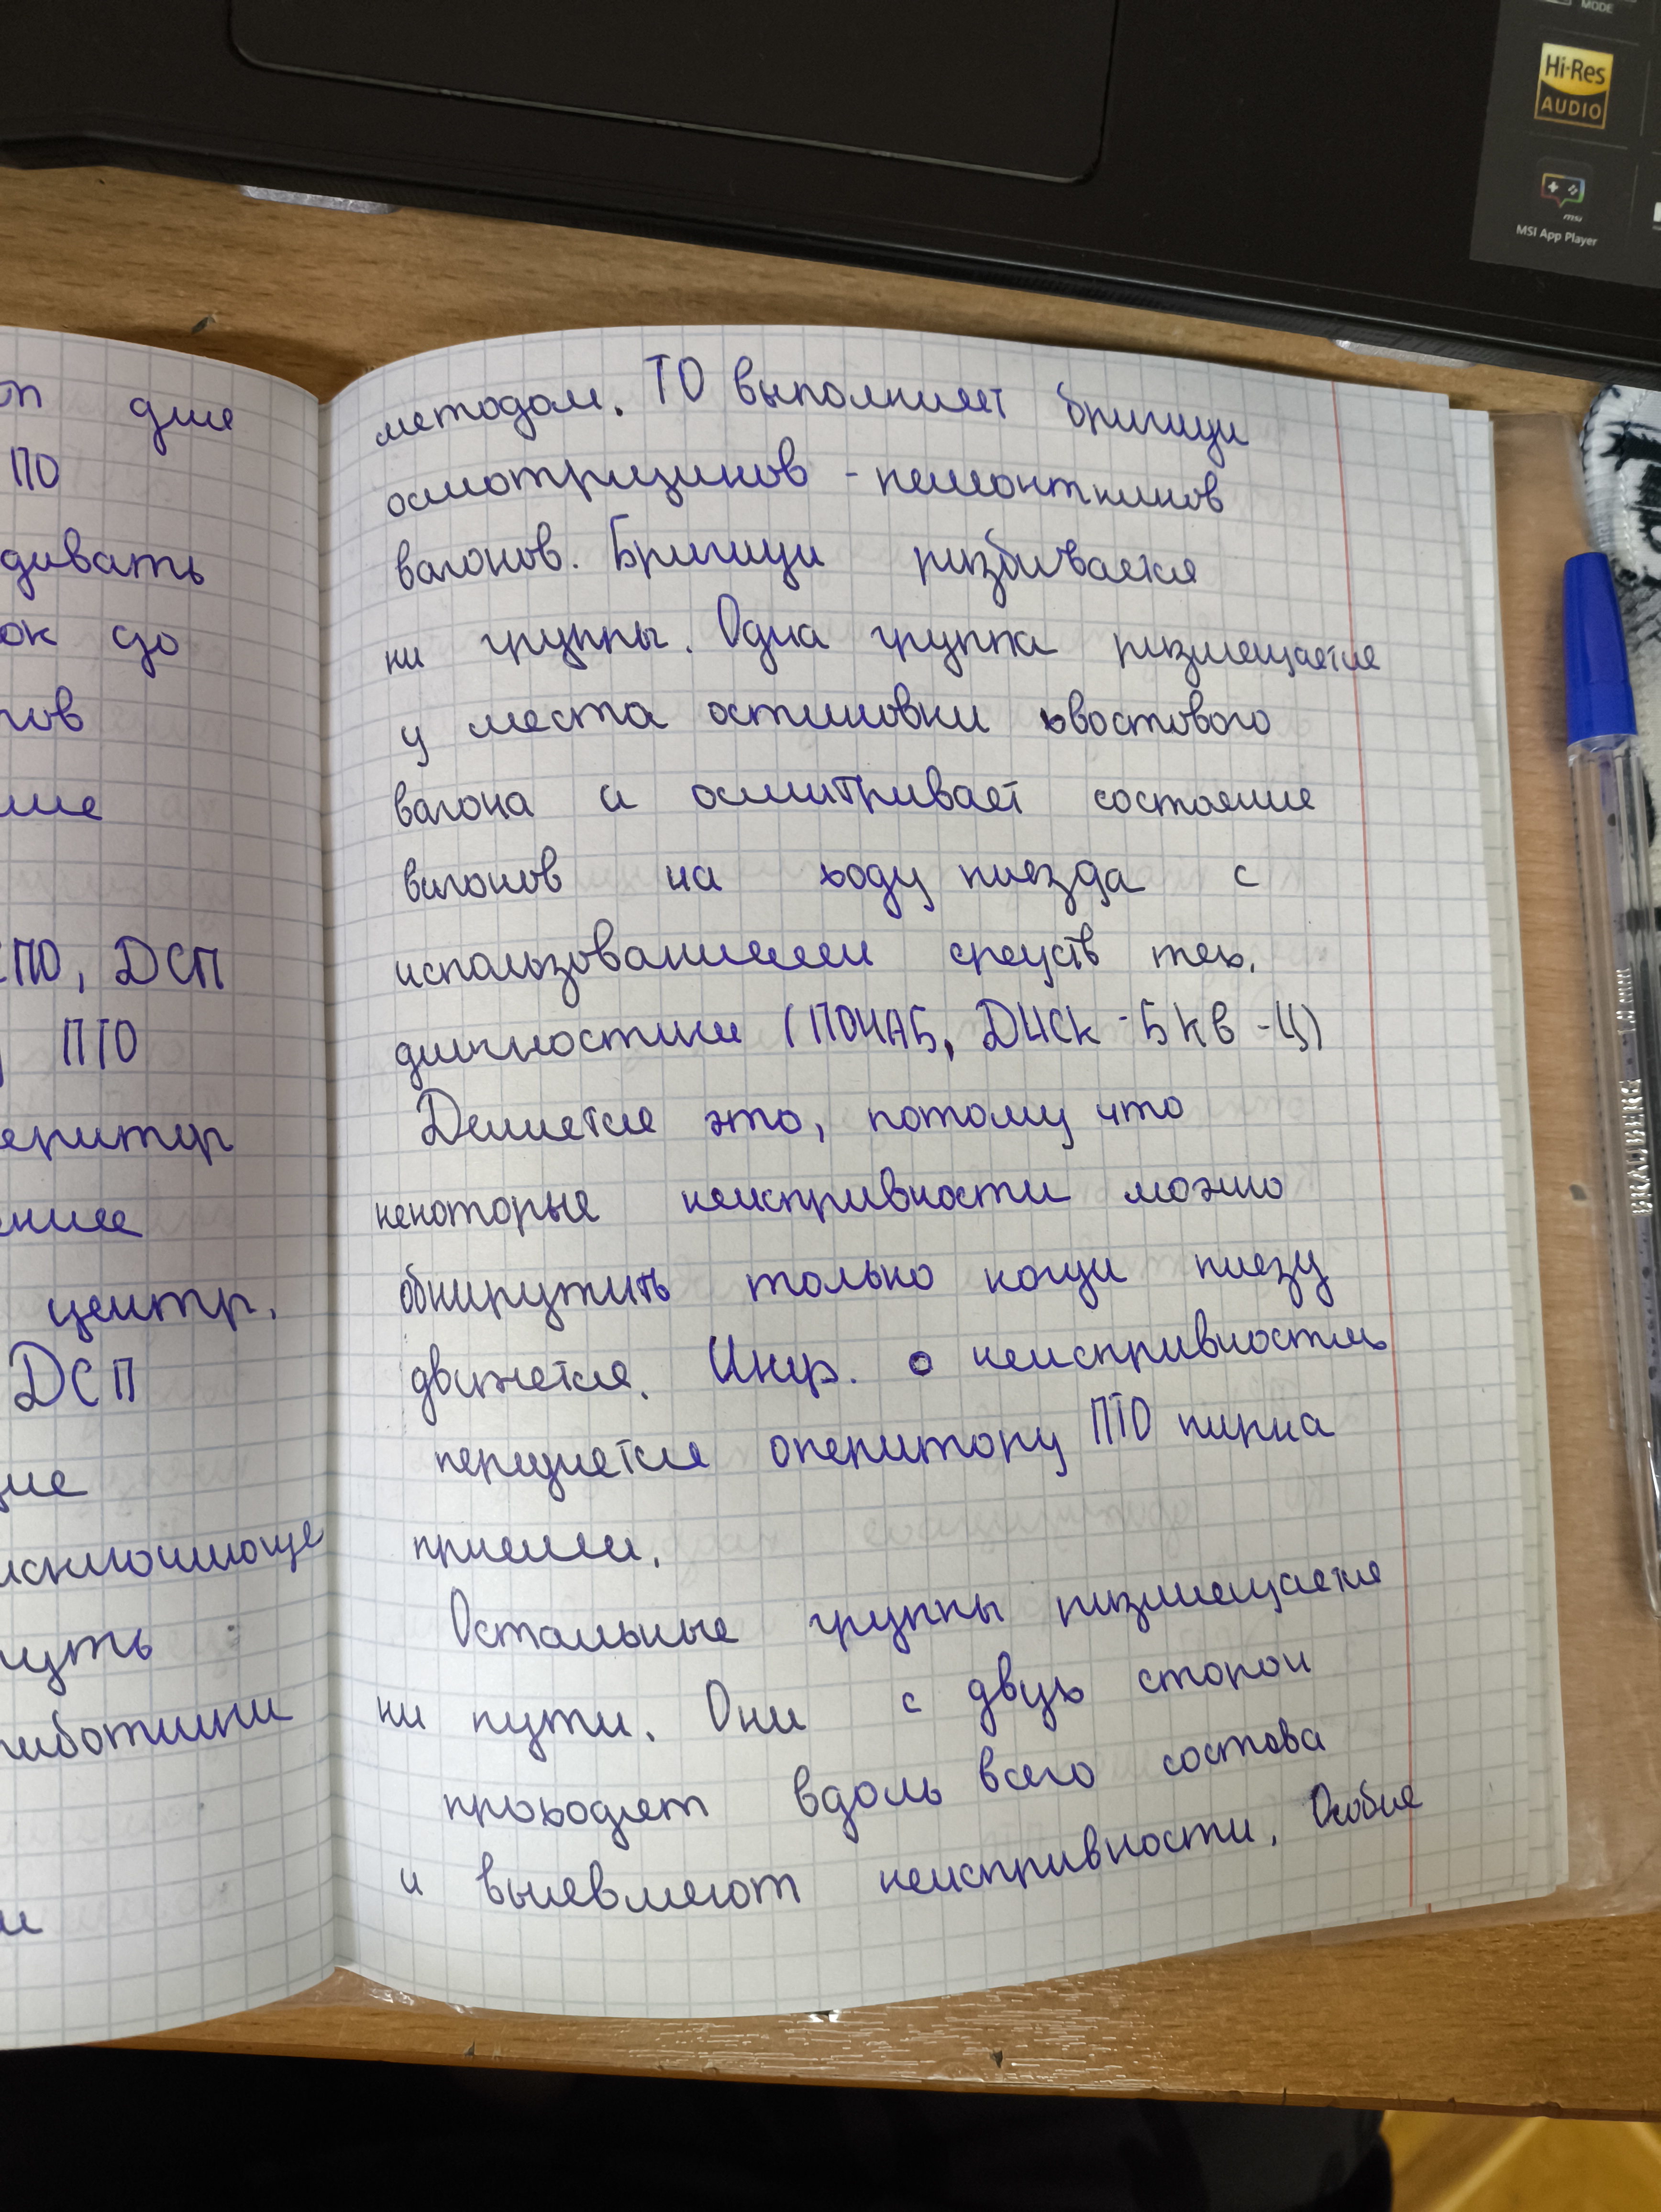 MODE
Hi-Res
AUDIO
msi
MSI App Player
BRAUBERG
ПО
дивать
ок до
ПО, ДСП
ПТО
центр.
ДСП
путь
методом. ТО выполняет бригада
осмотрщиков - ремонтников
вагонов. Бригада разбивается
на группы. Одна группа размещается
у места остановки хвостового
вагона и осматривает состояние
вагонов на ходу поезда с
использованием средств тех.
диагностики (ПОНАБ, ДИСК-БКВ-Ц)
Делается это, потому что
некоторые неисправности можно
обнаружить только когда поезд
движется. Инф. о неисправностях
передается оператору ПТО парка
приема.
Остальные группы размещается
на пути. Они с двух сторон
проходят вдоль всего состава
и выявляют неисправности. Особое